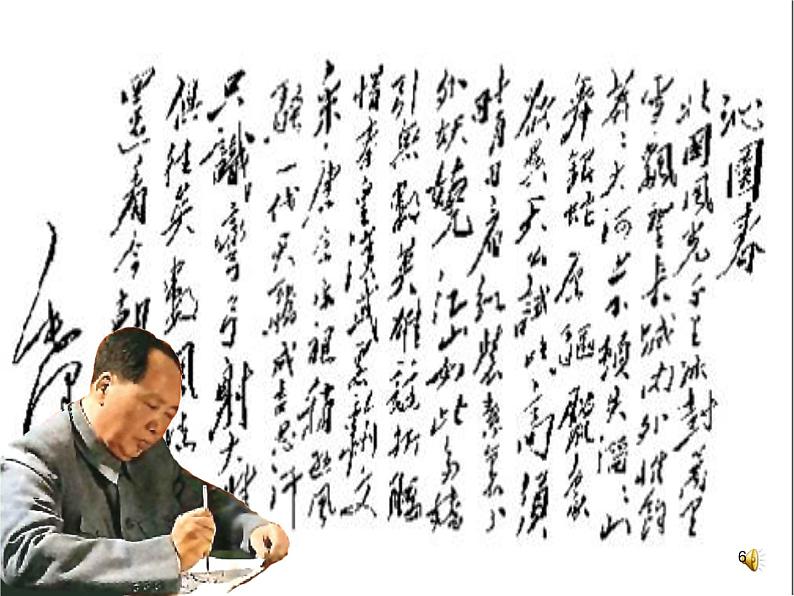 沁園春
北國風光千里冰封萬里
雪飄望長城内外惟餘
莽〻大河上下頓失滔〻山
舞銀蛇原驅臘象
欲與天公試比高須
晴日看紅裝素裹分
外妖嬈江山如此多嬌
引無數英雄競折腰
惜秦皇漢武略輸文
采唐宗宋祖稍遜風
騷一代天驕成吉思汗
只識彎弓射大雕
俱往矣數風流
還看今朝
毛澤
6